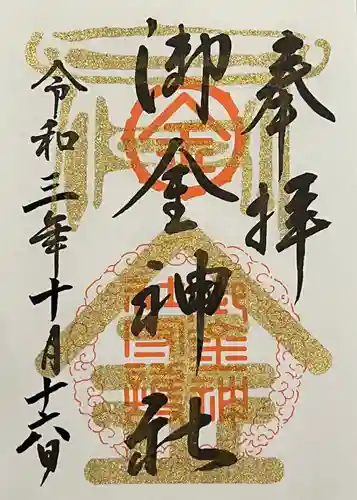 奉拝
御金神社
令和三年十月十六日
金